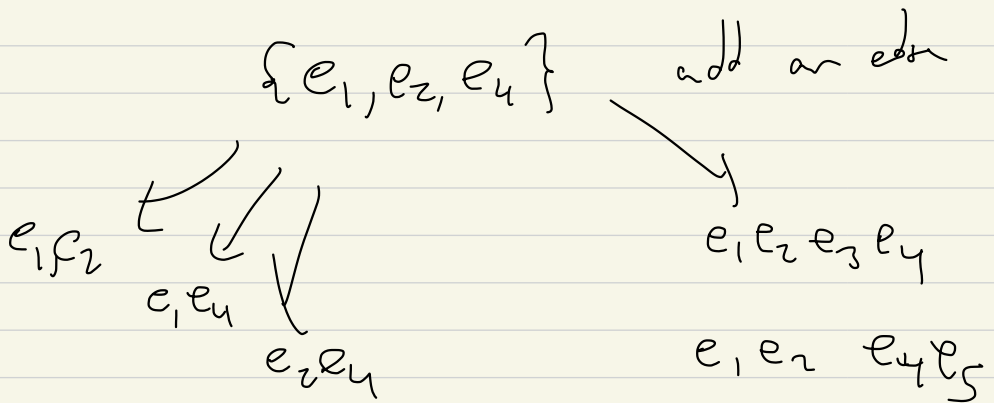 {e₁, e₂, e₄} add an edge
e₁e₂
e₁e₂e₃e₄
e₁e₄
e₂e₄
e₁e₂ e₄e₅